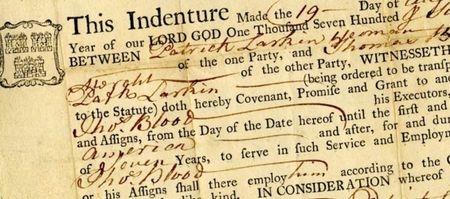 This Indenture Made the 19 Day of
Year of our LORD GOD One Thousand Seven Hundred
BETWEEN Patrick Larkin Yeoman
of the one Party, and Thomas
of the other Party, WITNESSETH
Patk Larkin (being ordered to be transp
to the Statute) doth hereby Covenant, Promise and Grant to
Thos. Blood his Executors,
and Assigns, from the Day of the Date hereof until the first and
America and after, for and du
of Seven Years, to serve in such Service and Employm
Thos. Blood
or his Assigns shall there employ him according to the
like kind. IN CONSIDERATION whereof